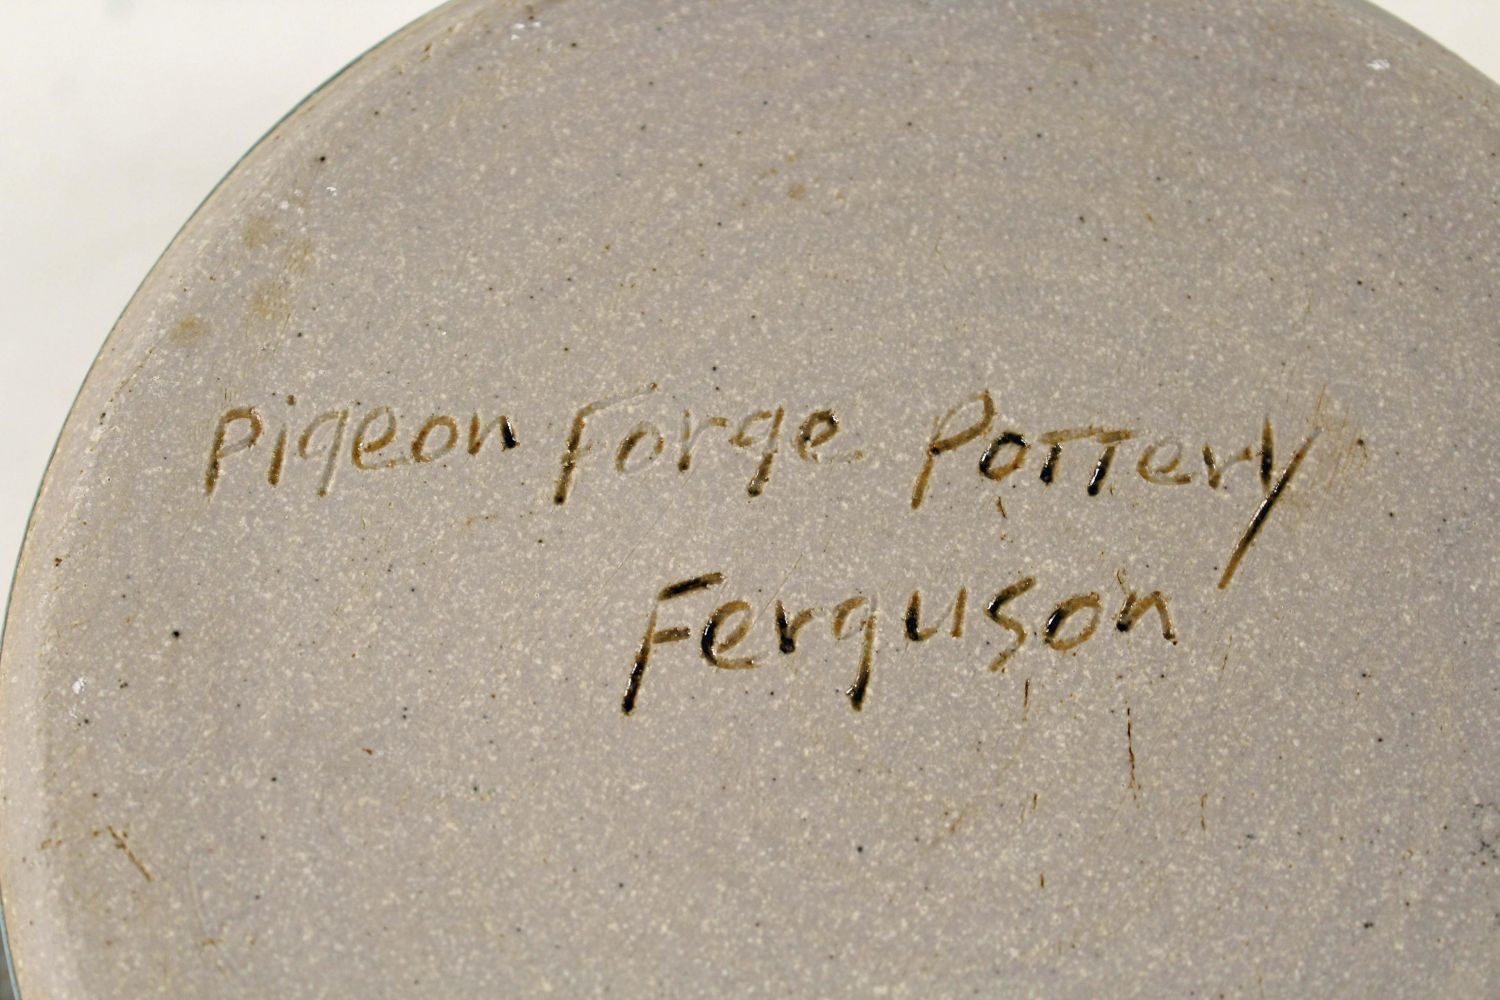 Pigeon Forge Pottery
Ferguson